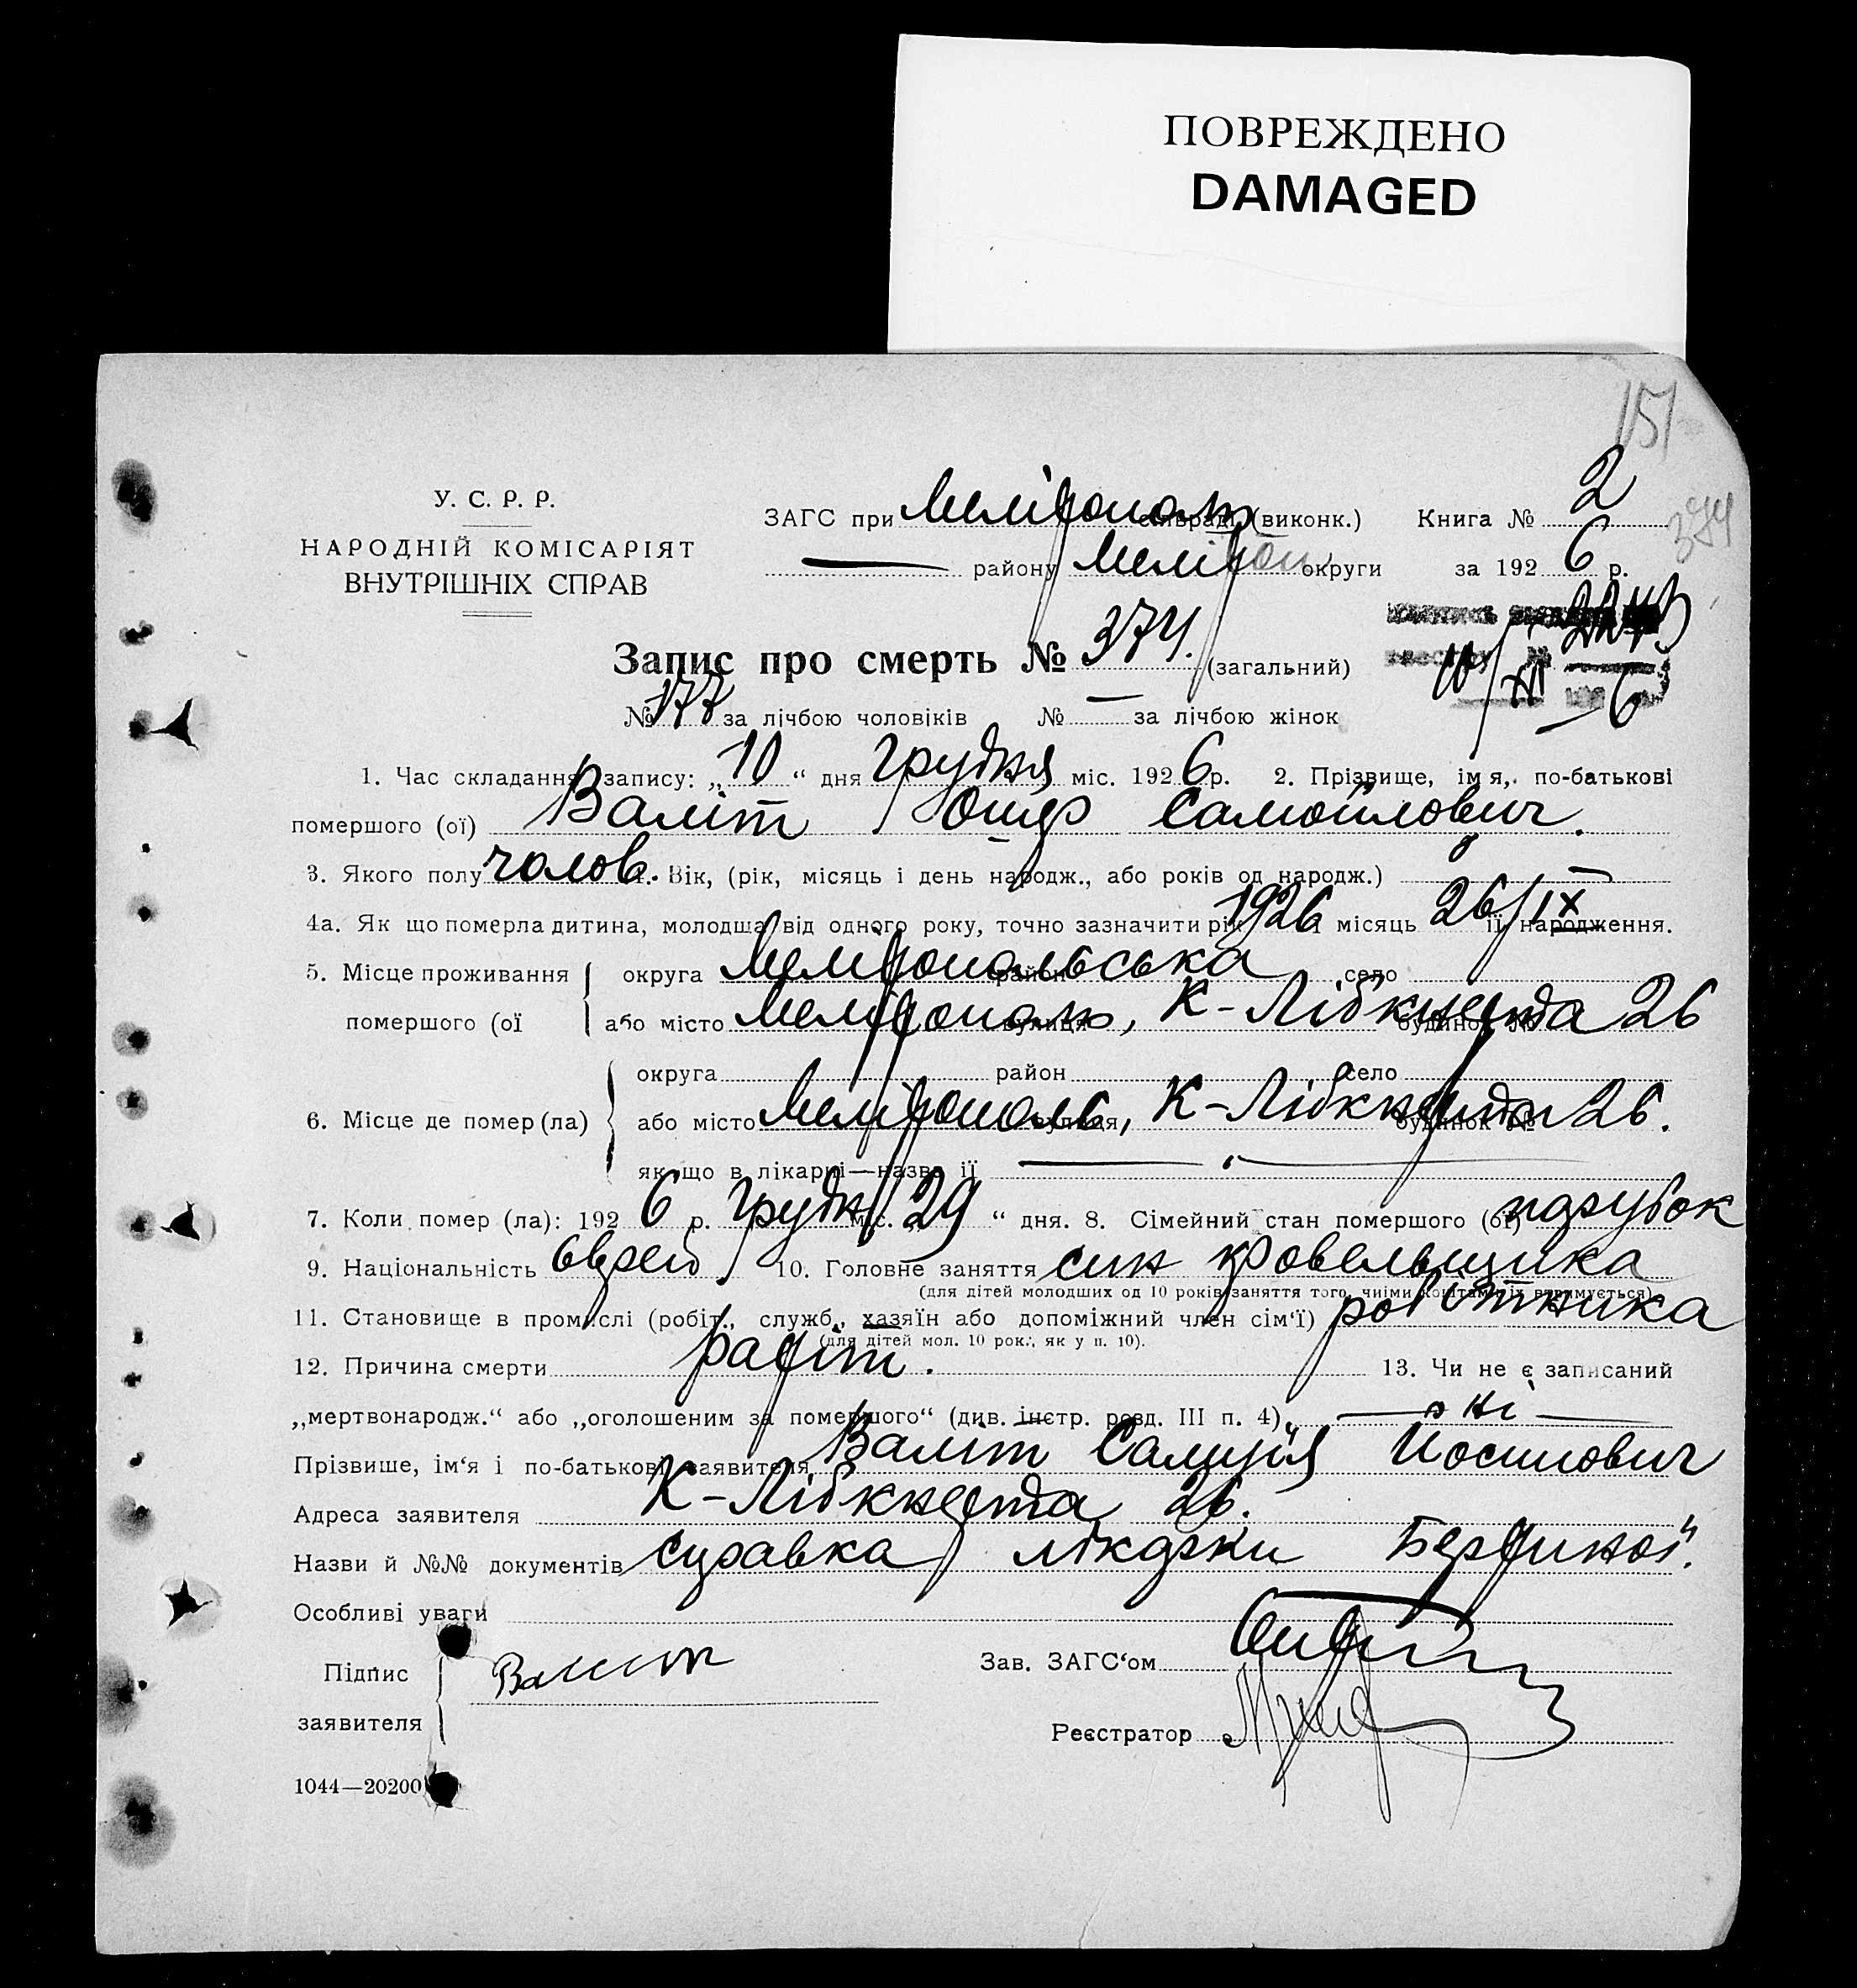 ПОВРЕЖДЕНО
DAMAGED
151
У. С. Р. Р.
НАРОДНІЙ КОМІСАРІЯТ
ВНУТРІШНІХ СПРАВ
ЗАГС при Мелітополь (виконк.) Книга № 2
374
— району Мелітоп округи за 1926 р.
Запис про смерть № 374. (загальний)
10/XII — 6
№ 177 за лічбою чоловіків № — за лічбою жінок
1. Час складання запису: „10“ дня Грудня міс. 1926 р. 2. Прізвище, імя, по-батькові
помершого (ої) Валіт Ошер Самойлович.
3. Якого полу чолов. Вік, (рік, місяць і день народж., або років од народж.) —
4а. Як що померла дитина, молодша від одного року, точно зазначити рік 1926 місяць 26/IX її народження.
5. Місце проживання округа Мелітопольська район село
помершого (ої або місто Мелітополь, вулиця К-Лібкнехта будинок № 26
округа район село
6. Місце де помер (ла) або місто Мелітополь, вулиця К-Лібкнехта будинок № 26.
як що в лікарні—назва її —
7. Коли помер (ла): 1926 р. Грудн міс. 29 “ дня. 8. Сімейний стан помершого (ої) парубок
9. Національність Еврей 10. Головне заняття син кровельщика
(для дітей молодших од 10 років заняття того, чиїми коштами їх втримується)
11. Становище в промислі (робіт., служб., хазяїн або допоміжний член сім‘ї) робітника
(для дітей мол. 10 рок., як у п. 10).
12. Причина смерти рахіт. 13. Чи не є записаний
„мертвонародж.“ або „оголошеним за помершого“ (див. інстр. розд. III п. 4). — ні —
Прізвише, ім‘я і по-батькові заявителя Валіт Самуїл Йосипович
Адреса заявителя К-Лібкнехта 26.
Назви й №№ документів Справка лікарки
Особливі уваги
Підпис
заявителя
Валит
Зав. ЗАГС‘ом
Реєстратор
1044—20200